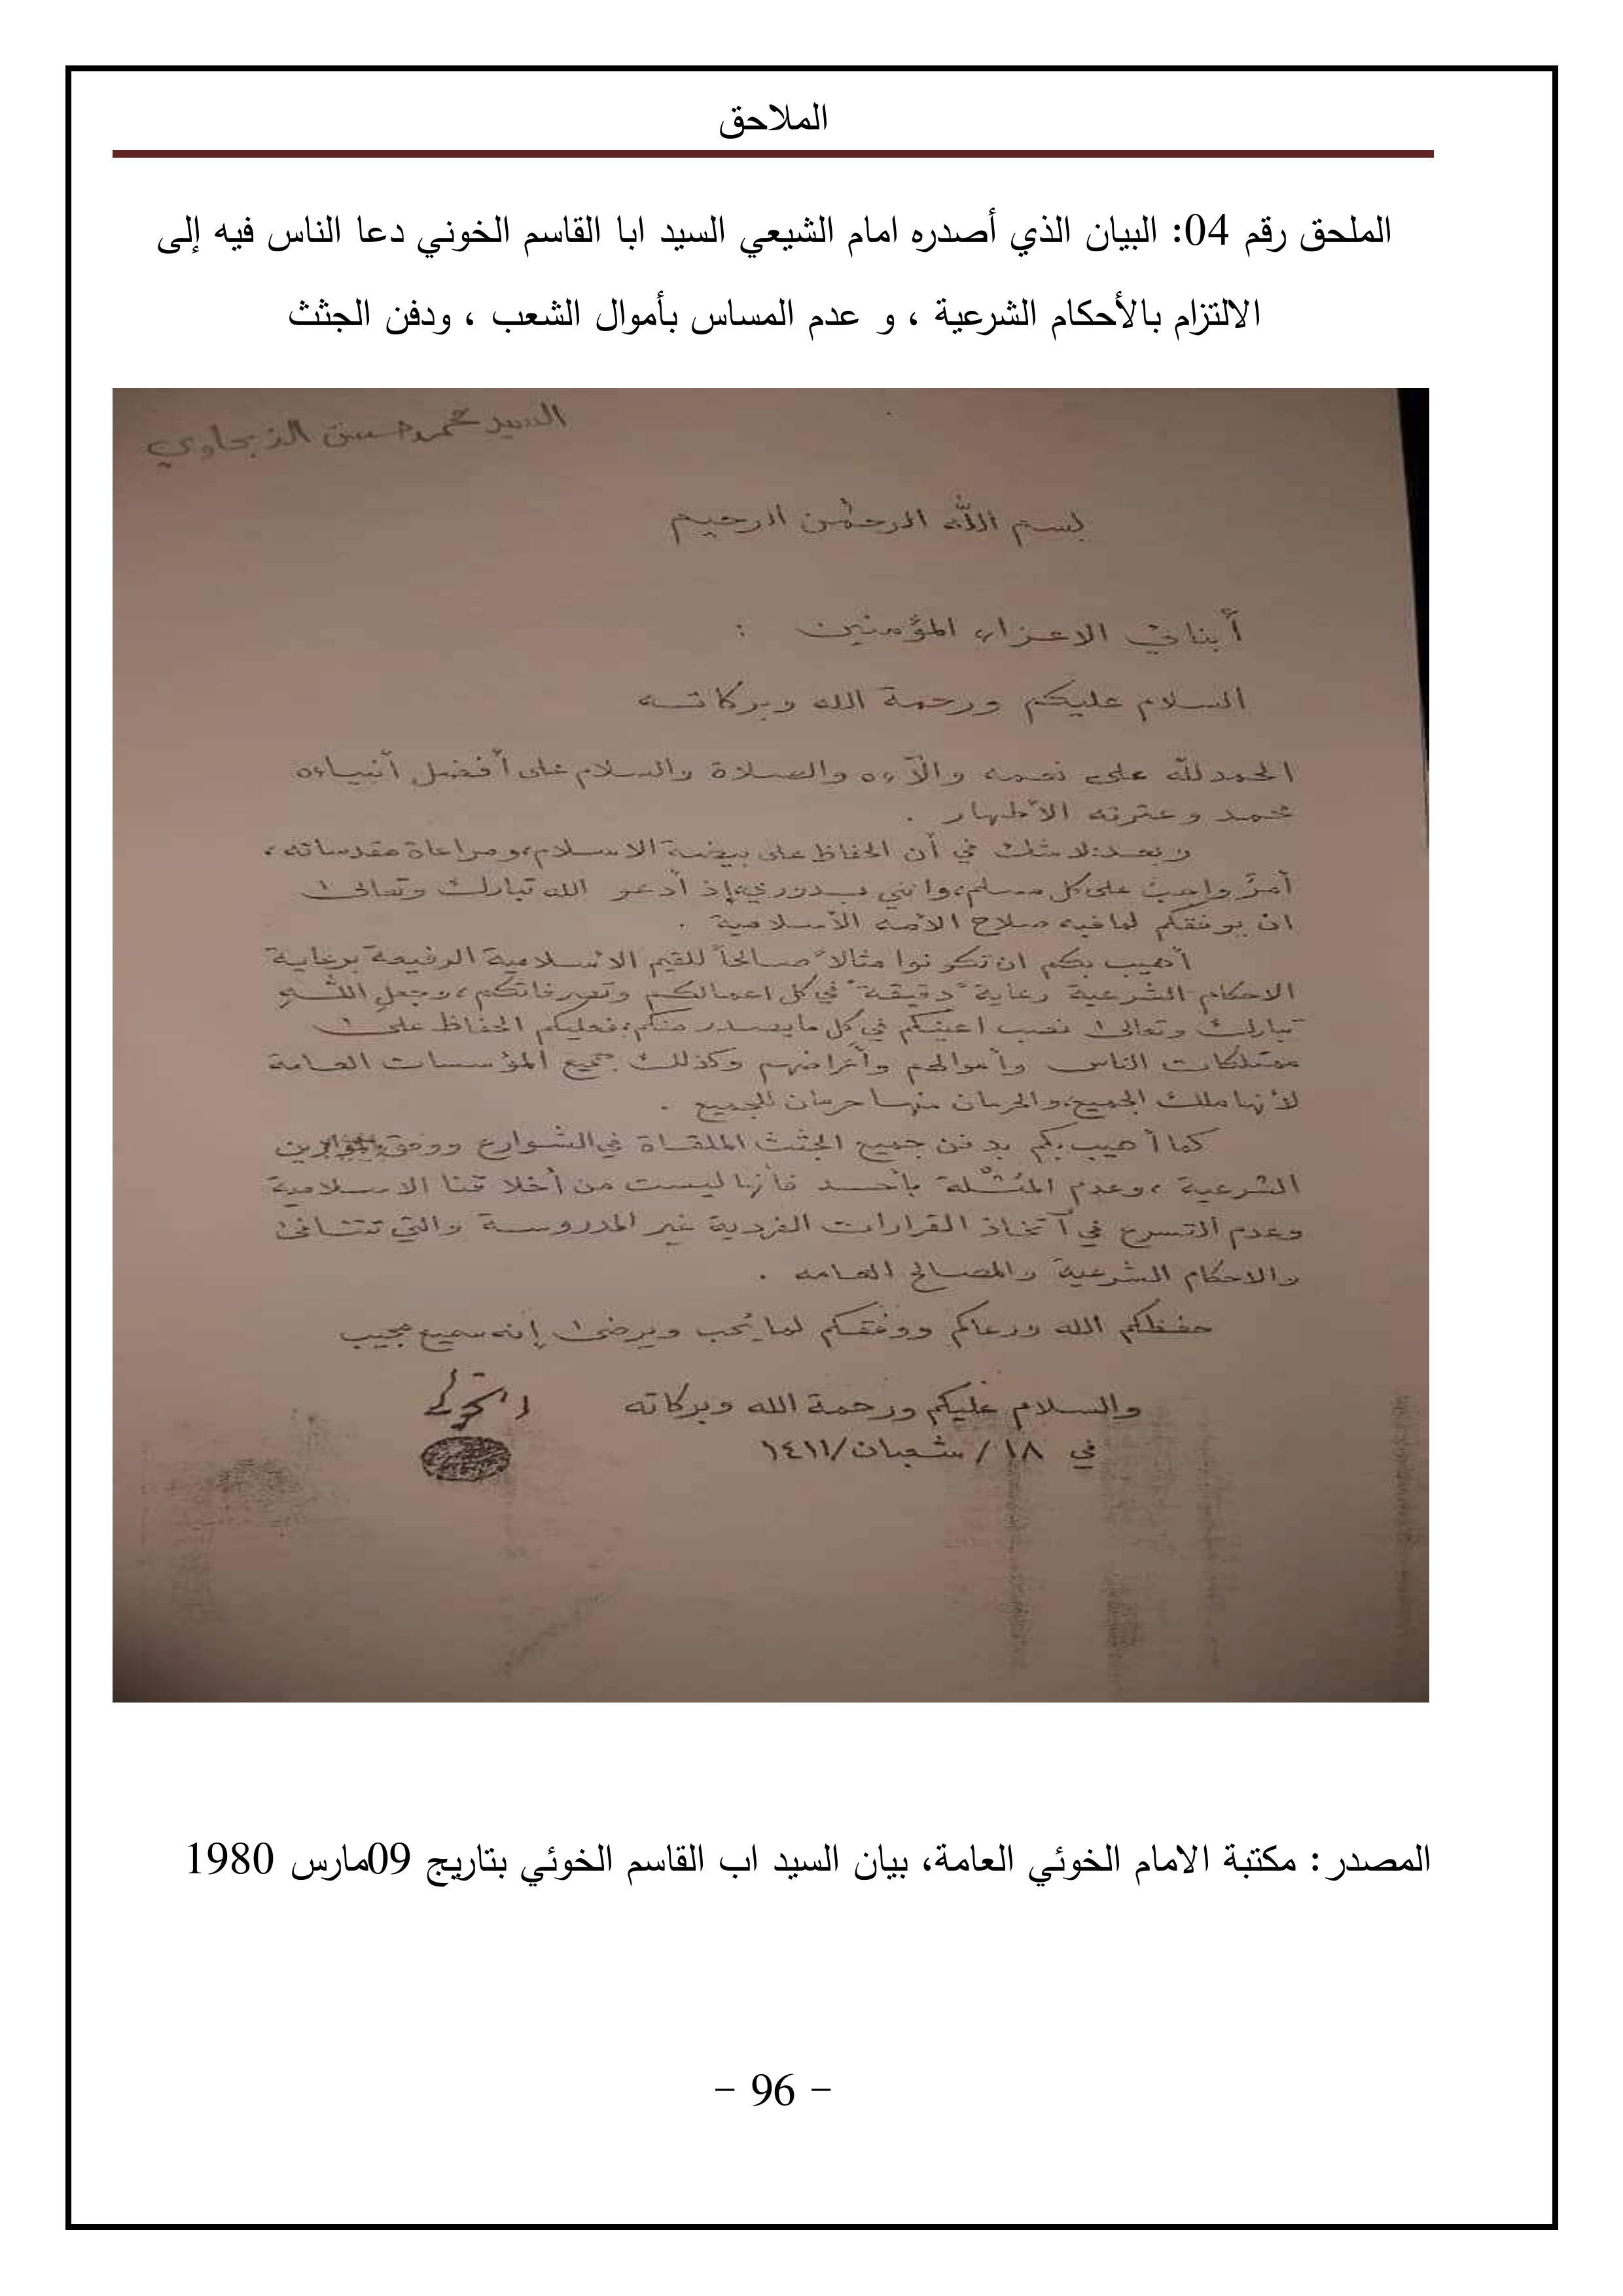 الملاحق
الملحق رقم 04: البيان الذي أصدره امام الشيعي السيد ابا القاسم الخوني دعا الناس فيه إلى
الالتزام بالأحكام الشرعية ، و عدم المساس بأموال الشعب ، ودفن الجثث
السيد محمد حسن
بسم الله الرحمٰن الرحيم
أبنائي الاعزاء المؤمنين :
السلام عليكم ورحمة الله وبركاته
الحمد لله على نعمه وآلآءه والصلاة والسلام على أفضل أنبياءه
محمد وعترته الأطهار .
وبعد: لا شك في أن الحفاظ على بيضة الاسلام، ومراعاة مقدساته،
أمرٌ واجبٌ على كل مسلم، وانني بدوري، إذ أدعو الله تبارك وتعالىٰ
ان يوفقكم لما فيه صلاح الأمه الأسلامية .
أهيب بكم ان تكونوا مثالاً صالحاً للقيم الاسلامية الرفيعة برعاية
الاحكام الشرعية رعاية دقيقة في كل اعمالكم وتصرفاتكم، وجعل اللّه
تبارك وتعالىٰ نصب اعينكم في كل ما يصدر منكم، فعليكم الحفاظ علىٰ
ممتلكات الناس وأموالهم وأعراضهم وكذلك جميع المؤسسات العامة
لأنها ملك الجميع، والحرمان منها حرمان للجميع .
كما أهيب بكم بدفن جميع الجثث الملقاة في الشوارع ووفق الموازين
الشرعية ، وعدم المُثْلة بأحد فأنها ليست من أخلاقنا الاسلامية
وعدم التسرع في آتخاذ القرارات الفردية غير المدروسة والتي تتنافىٰ
والاحكام الشرعية والمصالح العامه .
حفظكم الله ورعاكم ووفقكم لما يُحب ويرضىٰ إنه سميع مجيب
والسلام عليكم ورحمة الله وبركاته
في ١٨ / شعبان/١٤١١
المصدر : مكتبة الامام الخوئي العامة، بيان السيد اب القاسم الخوئي بتاريج 09مارس 1980
- 96 -